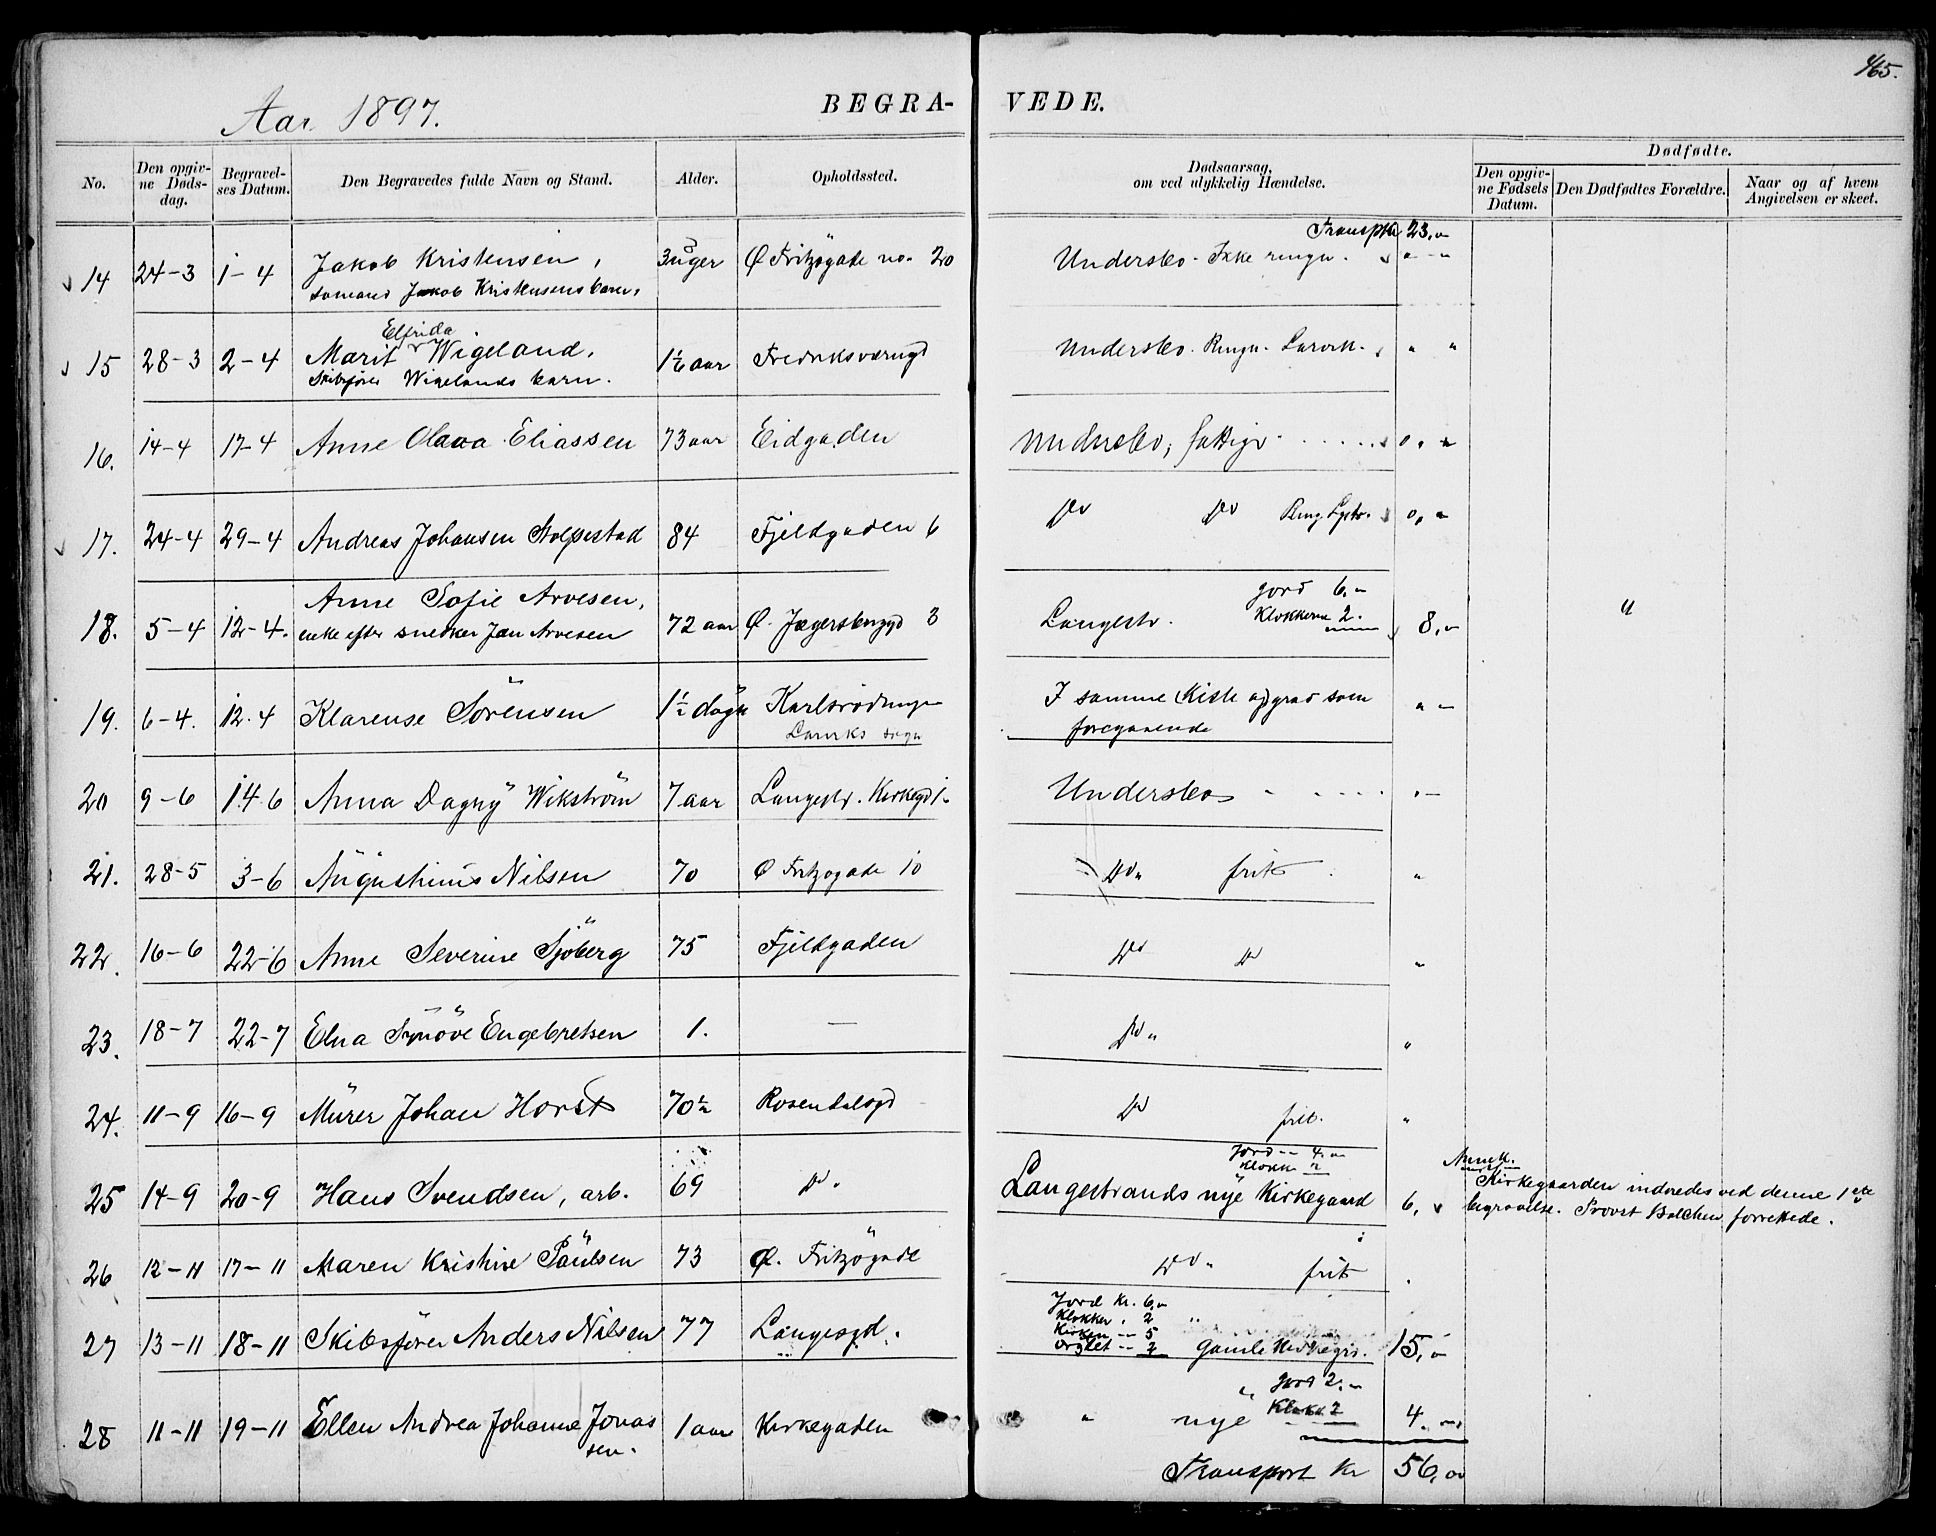 465.
Aar 1897.
BEGRA- VEDE.
No.
Den opgivne Dødsdag.
Begravelses Datum.
Den Begravedes fulde Navn og Stand.
Alder.
Opholdssted.
Dødsaarsag, om ved ulykkelig Hændelse.
Dødfødte.
Den opgivne Fødsels Datum.
Den Dødfødtes Forældre.
Naar og af hvem Angivelsen er skeet.
Transpkr 23,"
14 24-3 1-4 Jakob Kristensen, 3 uger Ø Fritzøgade no. 20 Undersbo. Ikke ringn. " - "
sømand Jakob Kristensens barn.
Elfrida
15 28-3 2-4 Marit Wigeland, 1½ aar Fredriksværngd Undersbo. Ringn. Larvik. " "
Skibsfører Wigelands barn.
16. 14-4 17-4 Anne Olava Eliassen 73 aar Eidgaden Undersbo, fattigv. 0, "
17. 24-4 29-4 Andreas Johansen Stolpestad 84 Fjeldgaden 6 Do Do Ring. Lgstr. 0, "
Anne Sofie Arvesen, Jord 6,"
18. 5-4 12-4. enke efter snedker Jan Arvesen 72 aar Ø. Jægersbngd 3 Langestr. Klokkerne 2. 8,"
"
19. 6-4. 12.4 Klarense Sörensen 1½ døgn Karlsrødningen I samme Kiste og grav som " -
Larviks sogn foregaaende
20 9-6 14.6 Anna Dagny Wikström 7 aar Langestr. Kirkegd 1. Undersbo " "-
21. 28-5 3-6 Augustinus Nilsen 70 Ø Fritzøgade 10 Do " frit "
22. 16-6 22-6 Anne Severine Sjöberg 75 Fjeldgaden Do Do "
23. 18-7 22-7 Elna Synöve Engebretsen 1. — Do " "
24. 11-9 16-9 Murer Johan Horst 70½ Rosendalsgd Do frit. "
Jord -- 4,"
Klokk 2
Anmk.
25 14-9 20-9 Hans Svendsen, arb. 69 Do " Langestrands nye Kirkegaard 6, " Kirkegaarden indviedes ved denne 1ste
begravelse. Provst Balchen forrettede.
26 12-11 17-11 Maren Kristine Paulsen 73 Ø. Fritzögade Do " frit
Jord Kr. 6,"
Klokker " 2
Kirken -- 5
27 13-11 18-11 Skibsfører Anders Nilsen 77 Langesgd. Orglet -- 2 Gamle Kirkegrd. 15,"
" Jord 2,"
28 11-11 19-11 Ellen Andrea Johanne Jonas 1 aar Kirkegaden " nye Klokk. 2 4.
sen.
Transport Kr 56,00